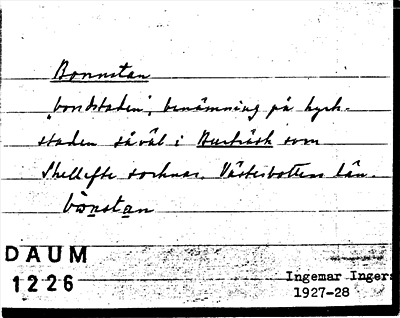 Bonnstan
"bondstaden", benämning på kyrk-
staden såväl i Burträsk som
Skellefte socknar. Västerbottens län.
bònstan
DAUM
1226
Ingemar Ingers
1927-28